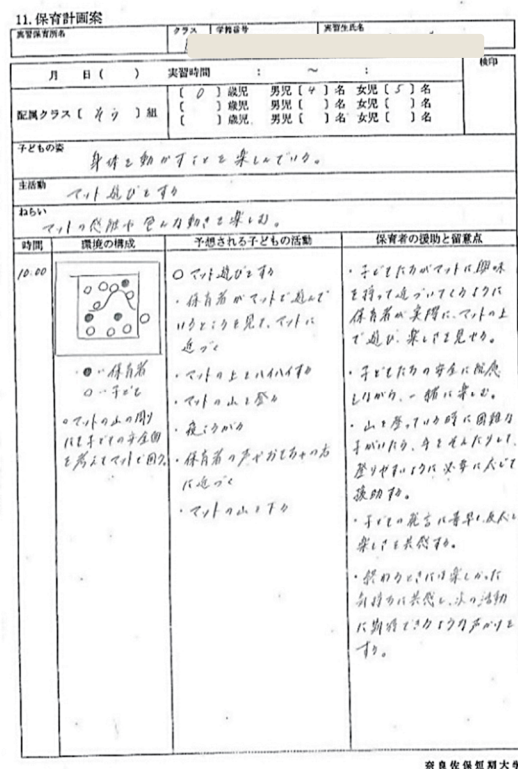 11. 保育計画案
実習保育所名
クラス
学籍番号
実習生氏名
月　日(　)　実習時間　：　～　：
検印
配属クラス〔 ぞう 〕組
〔 0 〕歳児　男児〔 4 〕名　女児〔 5 〕名
〔　〕歳児　男児〔　〕名　女児〔　〕名
〔　〕歳児　男児〔　〕名　女児〔　〕名
子どもの姿
身体を動かすことを楽しんでいる。
主活動
マット遊びをする
ねらい
マットの感触や色んな動きを楽しむ。
時間
環境の構成
予想される子どもの活動
保育者の援助と留意点
10:00
・●・保育者
○・子ども
○マットの山の周り
にも子どもの安全面
を考えてマットで囲う。
○マット遊びをする
・保育者がマットで遊んで
いるところを見て、マットに
近づく
・マットの上をハイハイする
・マットの山を登る
・寝ころがる
・保育者の声やおもちゃの方
に近づく
・マットの山を
・子どもたちがマットに興味
を持って近づいてくるように
保育者が実際に、マットの上
で遊び、楽しさを見せる。
・子どもたちの安全に配慮
しながら、一緒に楽しむ。
・山を登っている時に困難な
子がいたら、手をそえたりして、
登りやすいように必要に応じて
援助する。
・子どもの発言に
楽しさを共感する。
・終わるときには楽しかった
気持ちに共感し、次の活動
に期待できるような声かけを
する。
奈良佐保短期大学